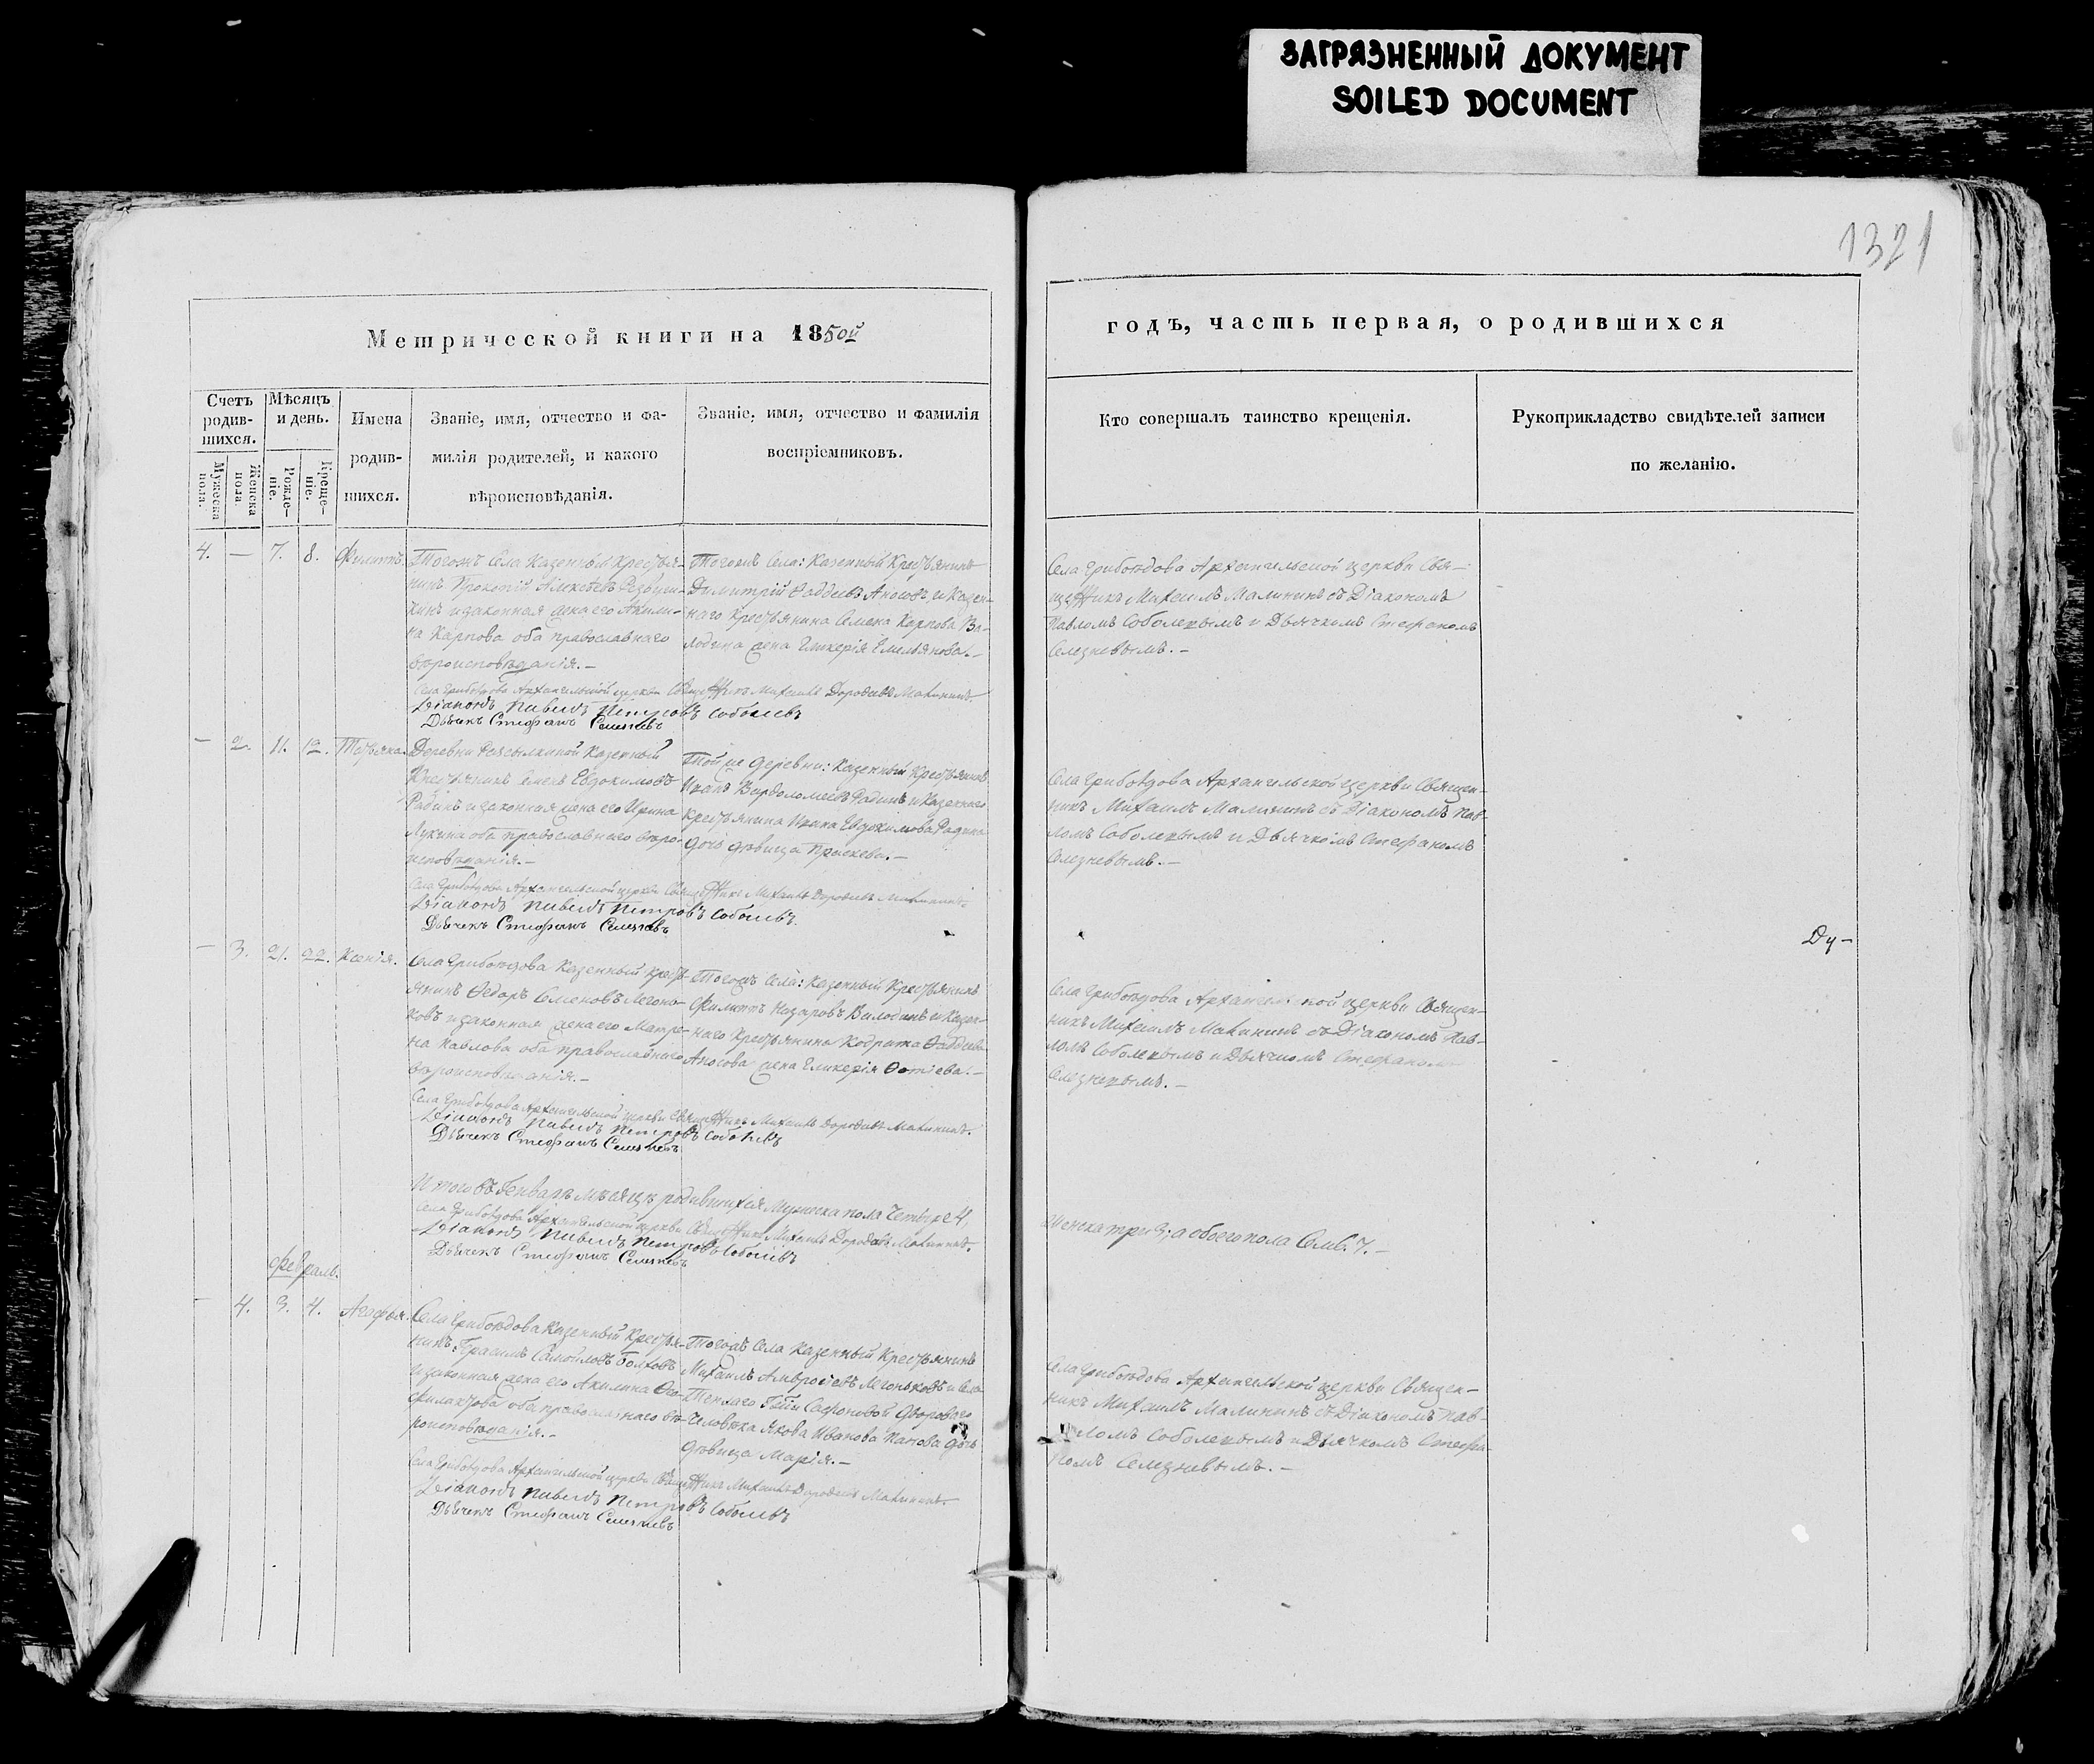 ЗАГРЯЗНЕННЫЙ ДОКУМЕНТ
SOILED DOCUMENT
1321
Метрической книги на 1850й
годъ, часть первая, о родившихся
Счетъ родив-шихся.
Мужеска пола.
Женска пола.
Мѣсяцъ и день.
Рожде-ніе.
Креще-ніе.
Имена
родив-
шихся.
Званіе, имя, отчество и фа-
милія родителей, и какого
вѣроисповѣданія.
Званіе, имя, отчество и фамилія
воспріемниковъ.
Кто совершалъ таинство крещенія.
Рукоприкладство свидѣтелей записи
по желанію.
4. — 7. 8. Филиппъ.
Тогожъ Села Казенный Крестья-
нинъ Прокопій Алексѣевъ
и законная жена его Акили-
на Карпова оба православнаго
вѣроисповѣданія.—
Тогожъ Села: Казенный Крестьянинъ
Димитрій Ѳаддѣевъ Аносовъ, и Казен-
наго Крестьянина Семена Карпова Во-
лодина жена Гликерія Емельянова.—
Села Грибоѣдова Архангельской церкви Свя-
щенникъ Михаилъ Малининъ съ Діакономъ
Павломъ Соболевымъ и Дьячкомъ Стефаномъ
Селезневымъ.—
Села Грибоѣдова Архангельской церкви Священникъ Михаилъ Малининъ.
Діаконъ Павелъ Петровъ Соболевъ
Дьячекъ Стефанъ Селезневъ
— 2. 11. 12. Татьяна.
Деревни Разсылкиной Казенный
Крестьянинъ Евдокимовъ
Радинъ и законная жена его Ирина
Лукина оба православнаго вѣро-
исповѣданія.—
Той же деревни: Казенный Крестьянинъ
Иванъ Варѳоломеевъ Радинъ и Казеннаго
Крестьянина Ивана Евдокимова Радина
дочь дѣвица Праскева.—
Села Грибоѣдова Архангельской церкви Священ-
никъ Михаилъ Малининъ съ Діакономъ Пав-
ломъ Соболевымъ и Дьячкомъ Стефаномъ
Селезневымъ.—
Села Грибоѣдова Архангельской церкви Священникъ Михаилъ Малининъ.
Діаконъ Павелъ Петровъ Соболевъ
Дьячекъ Стефанъ Селезневъ
Ду-
— 3. 21. 22. Ксенія.
Села Грибоѣдова Казенный Кресть-
янинъ Ѳедоръ Семеновъ Легонь-
ковъ и законная жена его Матре-
на Павлова оба православнаго
вѣроисповѣданія.—
Тогожъ Села: Казенный Крестьянинъ
Филиппъ Назаровъ Володинъ и Казен-
наго Крестьянина Кодрата Ѳаддѣева
Аносова жена Гликерія Фотіева.—
Села Грибоѣдова Архангельской церкви Священ-
никъ Михаилъ Малининъ съ Діакономъ Пав-
ломъ Соболевымъ и Дьячкомъ Стефаномъ
Селезневымъ.—
Села Грибоѣдова Архангельской церкви Священникъ Михаилъ Малининъ.
Діаконъ Павелъ Петровъ Соболевъ
Дьячекъ Стефанъ Селезневъ
Итого въ Генварѣ мѣсяцѣ родившихся Мужеска пола Четыре 4,
Женска три 3; а обоего пола Семь. 7.—
Села Грибоѣдова Архангельской церкви Священникъ Михаилъ Малининъ.
Діаконъ Павелъ Петровъ Соболевъ
Дьячекъ Стефанъ Селезневъ
Февраль.
— 4. 3. 4. Агафья.
Села Грибоѣдова Казенный Крестья-
нинъ Герасимъ Самойловъ Волковъ
и законная жена его Акилина Ѳео-
филактова оба православнаго вѣ-
роисповѣданія.—
Тогожъ Села Казенный Крестьянинъ
Михаилъ Амвросіевъ Легоньковъ и Села
Теплаго Гжи Сафоновой двороваго
человѣка Якова Иванова Попова дочь
дѣвица Марія.—
Села Грибоѣдова Архангельской церкви Священ-
никъ Михаилъ Малининъ съ Діакономъ Пав-
ломъ Соболевымъ и Дьячкомъ Стефа-
номъ Селезневымъ.—
Села Грибоѣдова Архангельской церкви Священникъ Михаилъ Малининъ.
Діаконъ Павелъ Петровъ Соболевъ
Дьячекъ Стефанъ Селезневъ